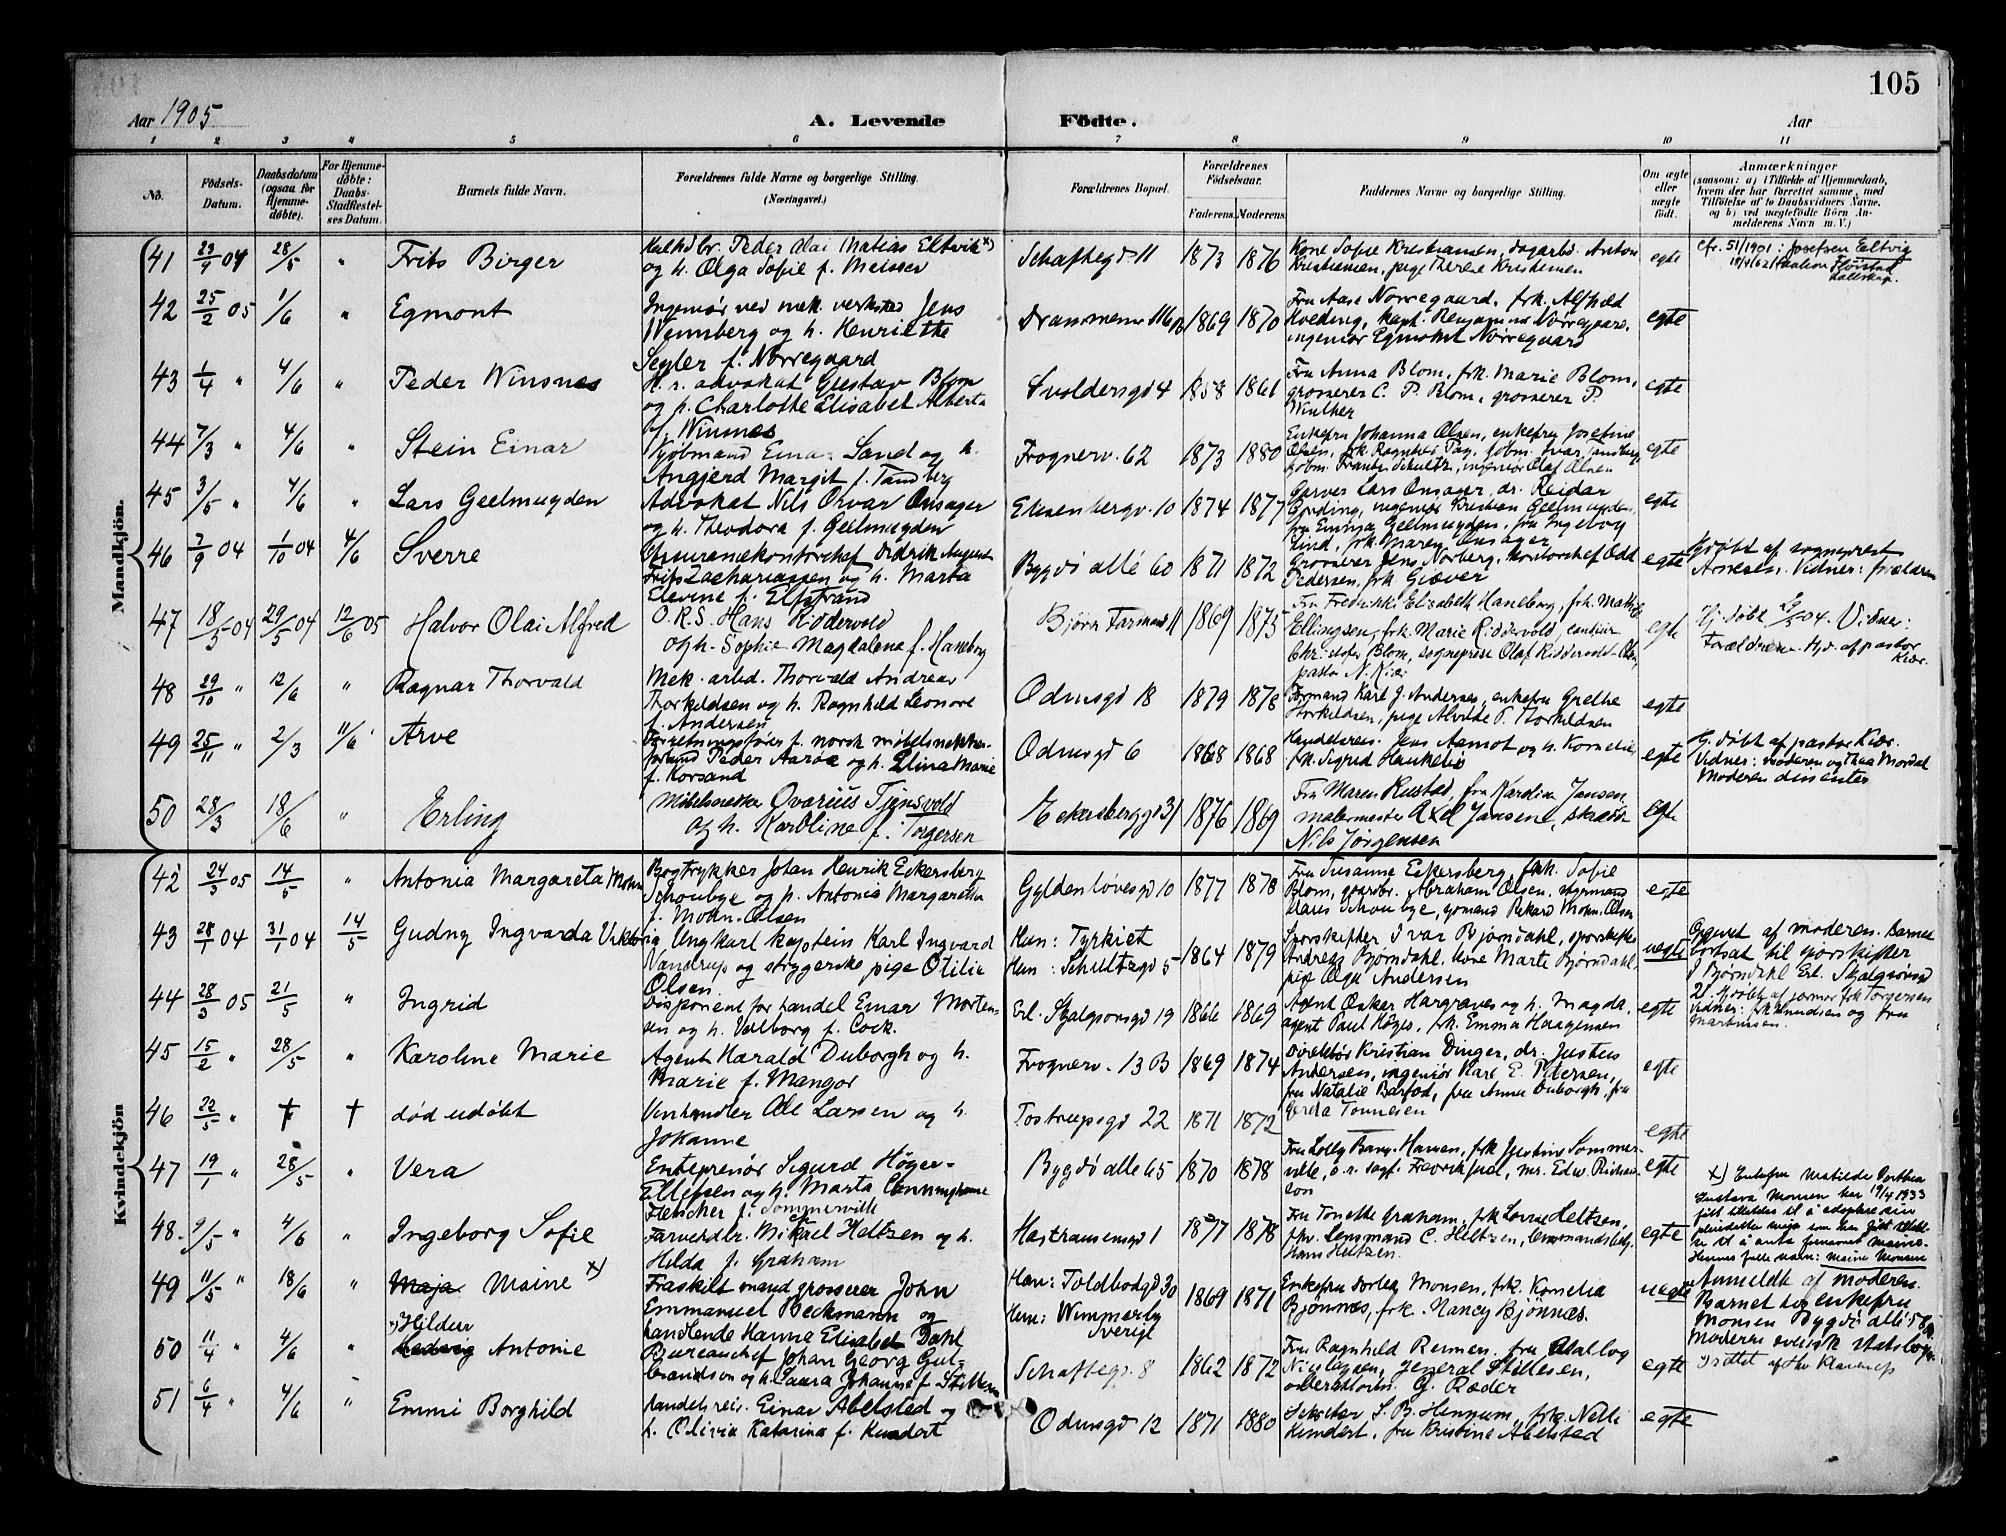 105
Aar 1905
A. Levende Födte.
Aar
1 2 3 4 5 6 7 8 9 10 11
No. Födsels-Datum. Daabsdatum (ogsaa for Hjemme-döbte). For Hjemme-döbte: Daabs-Stadfæstel-ses Datum. Barnets fulde Navn. Forældrenes fulde Navne og borgerlige Stilling. (Næringsvei.) Forældrenes Bopæl. Forældrenes Födselsaar. Faderens. Moderens. Faddernes Navne og borgerlige Stilling. Om ægte eller uægte födt. Anmærkninger (saasom: a) i Tilfælde af Hjemmedaab, hvem der har forrettet samme, med Tilföielse af to Daabsvidners Navne. og b) ved uægtefödte Börn An-melderens Navn m. V.)
Mandkjön.
41 23/9 04 28/5 " Frits Birger
Peder Mai Matias Eltvik x)
og h. Olga Sofie f. Meisser
Schaftegd 11 1873 1876
Kone Sofie Kristiansen, dagarb. Anton
Kristiansen, pige Therese Kristiansen
egte
cfr. 51/1901: Josefsen Eltvig
42 25/2 05 1/6 " Egmont
Ingeniør ved mek. verksted Jens
Wennberg og h. Henriette
Segler f. Nørregaard
Drammensv 116 B 1869 1870
Fru Aase Nørregaard, frk. Alfhild
Kveding, kapt. Benjamin Nørregaard,
ingeniør Egmont Nørregaard
egte
43 1/4 " 4/6 " Peder Winsnes
H. r. advokat Gustav Blom
og h. Charlotte Elisabet Alberta
f. Winsnes
Svoldersgd 4 1858 1861
Fru Anna Blom, frk. Marie Blom,
grosserer C. P. Blom, grosserer P.
Winther
egte
44 7/3 " 4/6 " Stein Einar
Kjøbmand Einar Sand og h.
Angjerd Margit f. Tandberg
Frognerv. 62 1873 1880
Enkefru Johanna Olsen, enkefru Josefine
Olsen, frk. Ragnhild
Schultz, ingeniør Olaf Olsen
egte
45 3/5 " 4/6 " Lars Geelmuyden
Advokat Nils Orvar Onsager
og h. Theodora f. Geelmuyden
Eilsenbergv. 10 1874 1877
Garver Lars Onsager, dr. Reidar
Gjording, ingeniør Kristian Geelmuyden,
fru Emma Geelmuyden, fru Ingeborg
Lind, frk. Maren Onsager
egte
46 7/9 04 1/10 04 4/6 Sverre
Assurancekontorchef Didrik August
Frits Zachariassen og h. Marta
Elevine f. Elfstrand
Bygdø allé 60 1871 1872
Grosserer Jens Norberg, kontorchef Odd
Pedersen, frk. Giæver
egte
Hjdøbt af sogneprest
Arnesen. Vidner: forældrene
47 18/5 04 29/5 04 12/6 05 Halvor Olai Alfred
O.R.S. Hans Riddervold
og h. Sophie Magdalena f. Haneborg
Bjørn Farmandsg 11 1869 1875
Fru Fredrikke Elisabeth Haneborg, frk. Mathilde
Ellingsen, frk. Marie Riddervold,
Christofer Blom, sogneprest Olaf Riddervold Olsen
pastor N. Kiær
egte
Hj. døbt 29/5 04. Vidner:
Forældrene. Hjd. af pastor
Kiær.
48 29/10 " 12/6 " Ragnar Thorvald
Mek. arbd. Thorvald Andreas
Thorkildsen og h. Ragnhild Leonore
f. Andersen
Odinsgd 18 1879 1878
Formand Karl J. Andersen, enkefru Grethe
Thorkildsen, pige Alvilde T. Thorkildsen
egte
49 25/11 " 2/3 11/6 Arve
Forretningsfører f. norsk møbelsnekker-
forbund Peder Aarøe og h. Elina Marie
f. Korsand
Odinsgd 6 1868 1868
Handelsreis. Jens Aamot og h. Kornelia,
frk. Sigrid Haukelie
egte
Hj. døbt af pastor Kiær.
Vidner: moderen og Thea Mordal
Moderen dissenter
50 28/3 18/6 " Erling
Møbelsnekker Ovarius Tjønsvold
og h. Karoline f. Torgersen
Eckersberggd 31 1876 1869
Fru Maren Rustad, fru Karoline Jansen,
malermester Axel Jansen, skredder
Nils Jørgensen
egte
Kvindekjön
42 24/3 05 14/5 " Antonia Margareta Mohn
Bogtrykker Johan Henrik Eckersberg
Schoubye og h. Antonia Margaretha
f. Mohn-Olsen
Gyldenløvesgd 10 1877 1878
Fru Susanne Eckersberg, frk. Sofie
Blom, gaardbr. Abraham Olsen, styrmand
Lars Schoubye, sømand Rikard Mohn-Olsen
egte
43 28/1 04 31/1 04 14/5 Gudny Ingvarda Viktoria
Ungkarl kaptein Karl Ingvard
Nandrup og strygerske pige Otilie
Olsen
Han: Tyrkiet
Hun: Schultzgd 5 1864 1879
Sporskifter Ivar Bjørndahl, sporskifter
Andreas Bjørndahl, kone Marte Bjørndahl,
pige Olga Andersen
uegte
Opgivet af moderen. Barnet
bortsat til sporskifter
I Bjørndahl Erl. Skjalgsønsgd
21. Hjdøbt af jormor frk Torgersen
Vidner: frk Knudsen og fru
Martinsen.
44 28/3 05 21/5 " Ingrid
Disponent for handel Einar Morten-
sen og h. Valborg f. Cock.
Erl. Skjalgsonsgd 19 1866 1869
Agent Oskar Hargraves og h. Magda,
agent Paul Høges, frk. Emma Haagensen
egte
45 15/2 " 28/5 " Karoline Marie
Agent Harald Duborgh og h.
Marie f. Mangor
Frognerv. 13 B 1869 1874
Direktør Kristian Dinger, dr. Justus
Andersen, ingeniør Karl E. Petersen,
fru Natalie Barfod, fru Anna Duborgh, fru
Gerda Tønnesen
egte
46 22/5 " † † død udøbt
Vinhandler Ole Larsen og h.
Johanne
Tostrupsgd 22 1871 1872
egte
47 19/1 " 28/5 " Vera
Entreprenør Sigurd Høyer-
Ellefsen og h. Marta Cunninghame
Fletscher f. Sommerville
Bygdø alle 65 1870 1878
Fru Lolly Bang-Hansen, frk Justine Sommer-
ville, o. r. sagf. Fredrik Juel, mr. Edw. Richard-
son
egte
48 9/5 " 4/6 " Ingeborg Sofie
Farverdbr. Mikael Heltzen og h.
Hilda f. Graham
Haxthausensgd 1 1877 1878
Fru Tonette Graham, frk Lovise Heltzen,
fhv. lensmand C. Heltzen, lensmandsbetj.
Hans Heltzen.
egte
49 11/5 " 18/6 " Maja Maine x)
Fraskilt mand grosserer John
Emmanuel Beckmann og
handlende Hanna Elisabet Dahl
Han: Toldbodgd 30
Hun: Wimmerby
Sverige 1869 1871
Enkefru Dortea Monsen, frk. Kornelia
Bjønnes, frk. Nancy Bjønnes.
uegte
x) Enkefru Matilde Dorthea
Gustava Monsen har 19/4 1933
fått tilladelse til å adoptere sin
pleiedatter Maja som har fått tillatel-
se til å anta fornavnet Maine.
Hennes fulle navn: Maine Monsen
Anmeldt af moderen.
Barnet hos enkefru
Monsen Bygdø allé 58 B.
Moderen svensk statsborger
50 11/4 " 4/6 " Hildur Ludvig Antonie
Bureauchef Johan Georg Gul-
brandson og h. Laura Johanne f. Stillesen
Schaftegd 8 1862 1872
Fru Ragnhild Reimers, fru Valborg
Nicolaysen, general Stillesen,
G. Ræder
egte
Irettet af fhv Klaveresp
51 6/4 " 4/6 " Emmi Borghild
handelsreis. Einar Abelsted og
h. Olivia Katarina f. Kundert
Odinsgd 12 1871 1880
Sekretær S. B. Hennum, frk. Nelli
Kundert, fru Kristine Abelsted
egte